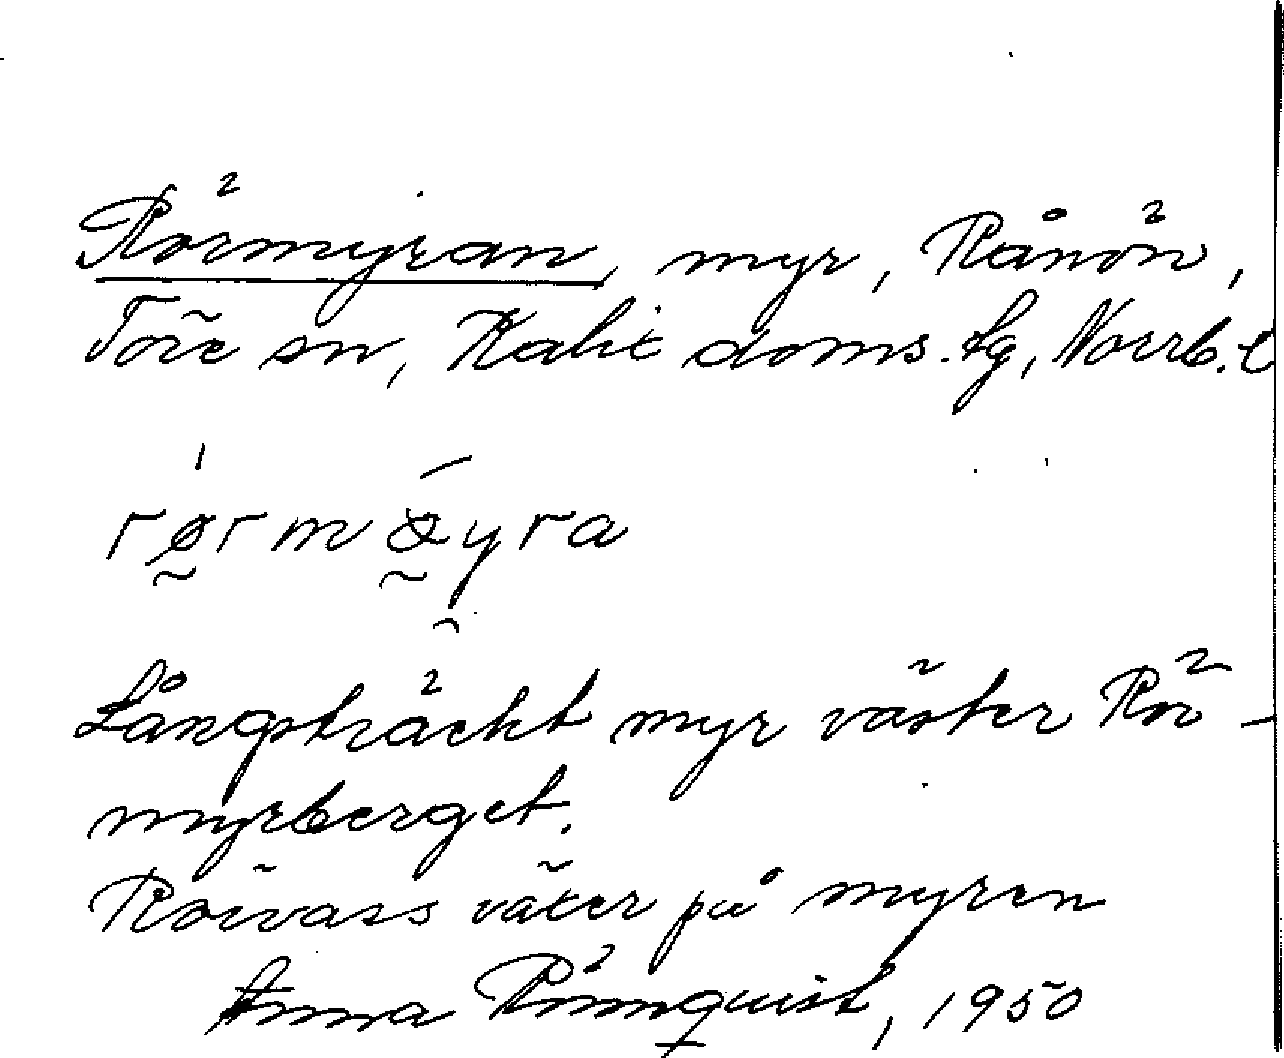 Rörmyran, myr, Rånön,
Töre sn, Kalix doms. lg, Norrb. l
Långsträckt myr väster Rör-
myrberget.
Rörvass växer på myren
Anna Rönnquist, 1950